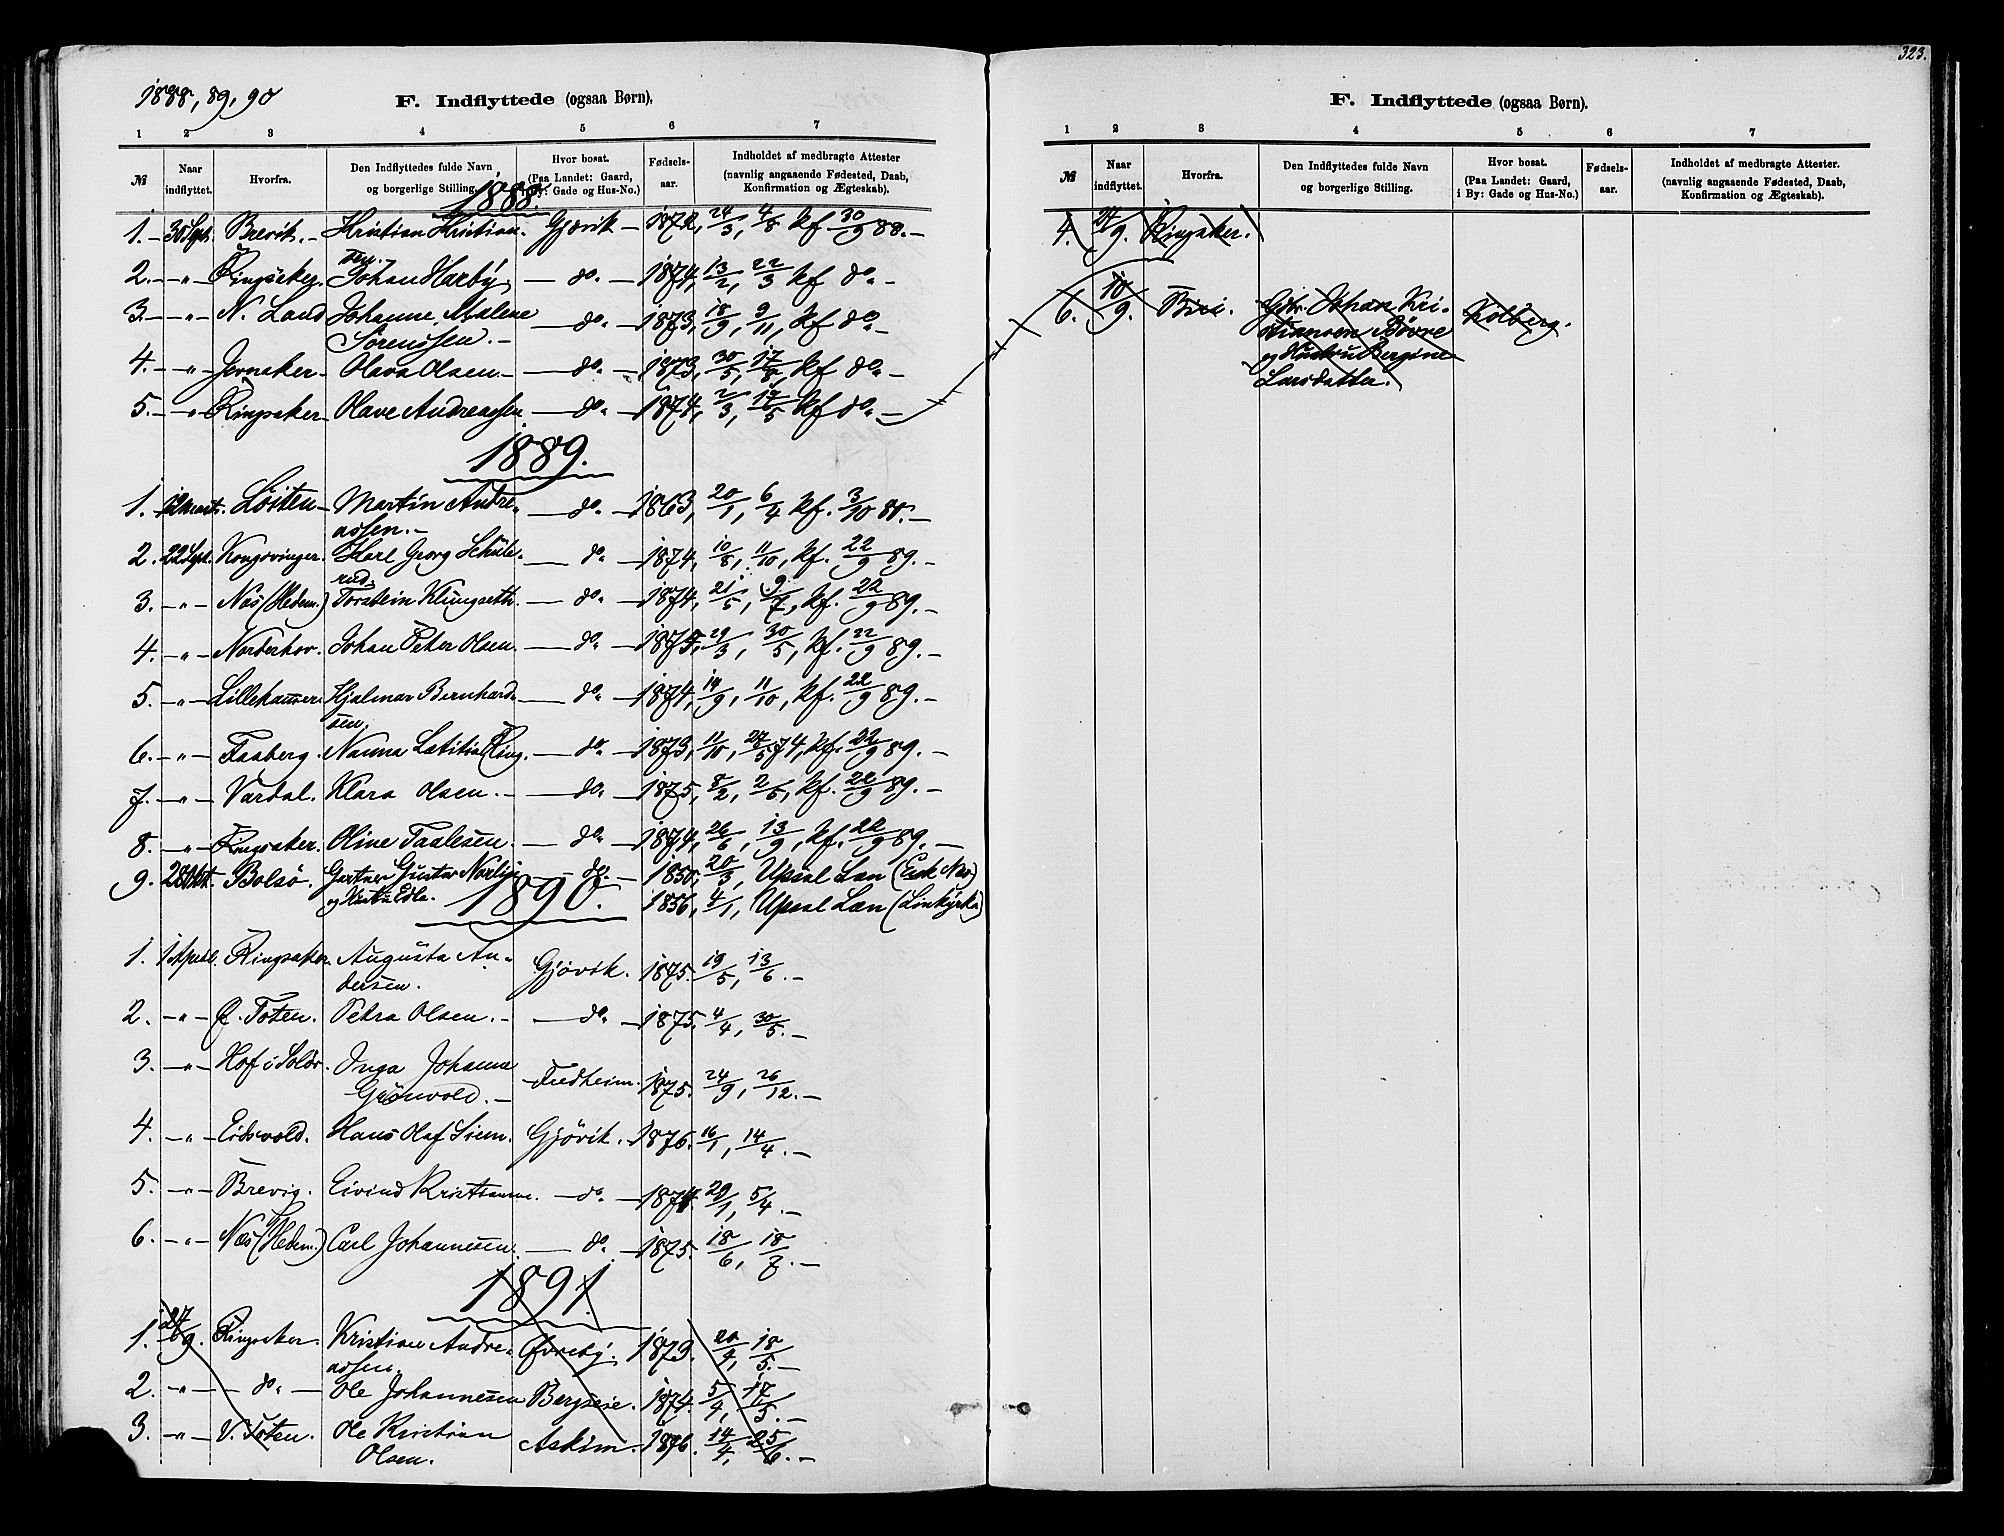 1888, 89, 90
F. Indflyttede (ogsaa Børn).
1 2 3 4 5 6 7
№ Naar indflyttet. Hvorfra. Den Indflyttedes fulde Navn og borgerlige Stilling. Hvor bosat. (Paa Landet: Gaard, i By: Gade og Hus-No.) Fødsels-aar. Indholdet af medbragte Attester (navnlig angaaende Fødested, Daab, Konfirmation og Ægteskab).
1888.
1. 30 Sept. Brevik. Kristian Kristian- Gjøvik 1872, 24/3, 4/8 kf. 30/9 88.
sen.
2. " Ringsaker. Johan Harby, do. 1874, 13/2, 22/3 kf do.
3. " N. Land Johanne Malene do. 1873, 18/9, 9/11, kf do.
Sørenssen.
4. " Jevnaker Olava Olsen. do. 1873, 30/5, 17/8, kf do.
5. " Ringsaker Olave Andreassen do. 1874, 2/3, 17/5 kf do.
1889.
1. Løiten Martin Andre- do. 1863, 20/1, 6/4 kf. 3/10 80.
assen.
2. 22 Sept. Kongsvinger Karl Georg Schule- do. 1874, 10/8, 11/10, kf. 22/9 89.
rud.
3. " Næs (Hedem.) Torstein Klungseth. do. 1874, 21/5, 9/7, kf. 22/9 89.
4. " Norderhov. Johan Peter Olsen. do. 1875, 29/3, 30/5, kf. 22/9 89.
5. " Lillehammer. Hjalmar Bernhard- do. 1874, 14/9, 11/10 kf. 22/9 89.
sen.
6. " Faaberg. Nanna Lætitia Ring. do. 1873, 11/10, 24/5 74, kf. 22/9 89.
7. " Vardal. Klara Olsen. do. 1875, 8/2, 2/5, kf. 22/9 89.
8. " Ringsaker. Oline Taalesen. do. 1874, 26/6, 13/9, kf. 22/9 89.
9. 28 Okt. Bolsø. Gartner Gustav Norling do. 1850, 20/3, Upsal Læn
og Hustru Edla. 1856, 4/1, Upsal Læn (Linkyrka)
1890.
1. 1 April. Ringsaker. Augusta An- Gjøvik. 1875. 19/5, 13/6.
dersen.
2. " Ø. Toten. Petra Olsen. do. 1875. 4/4, 30/5.
3. " Hof i Solør. Inga Johanna Fredheim. 1875. 24/9, 26/12.
Grönvold.
4. " Eidsvold. Hans Olaf Siem. Gjøvik. 1876. 16/1, 14/4.
5. " Brevig. Eivind Kristiansen. do. 1874. 29/1, 5/4.
6. " Næs (Hedem.) Carl Johannesen. do. 1875. 18/6, 18/7.
1891.
1. 27/9. Ringsaker. Kristian Andre- Øvreby. 1873. 20/4, 18/5.
assen.
2. " do. Ole Johannesen Bergseie. 1874. 5/4, 17/5.
3. " V. Toten. Ole Kristian Askim. 1876. 14/4, 25/6.
Olsen.
323.
F. Indflyttede (ogsaa Børn).
1 2 3 4 5 6 7
№ Naar indflyttet. Hvorfra. Den Indflyttedes fulde Navn og borgerlige Stilling. Hvor bosat. (Paa Landet: Gaard, i By: Gade og Hus-No.) Fødsels-aar. Indholdet af medbragte Attester. (navnlig angaaende Fødested, Daab, Konfirmation og Ægteskab).
4. 27/9. Ringsaker.
6. 10/9. Biri. Gdbr. Johan Kri- Kolberg.
stiansen Bøvre
og Hustru Bergine
Larsdatter.